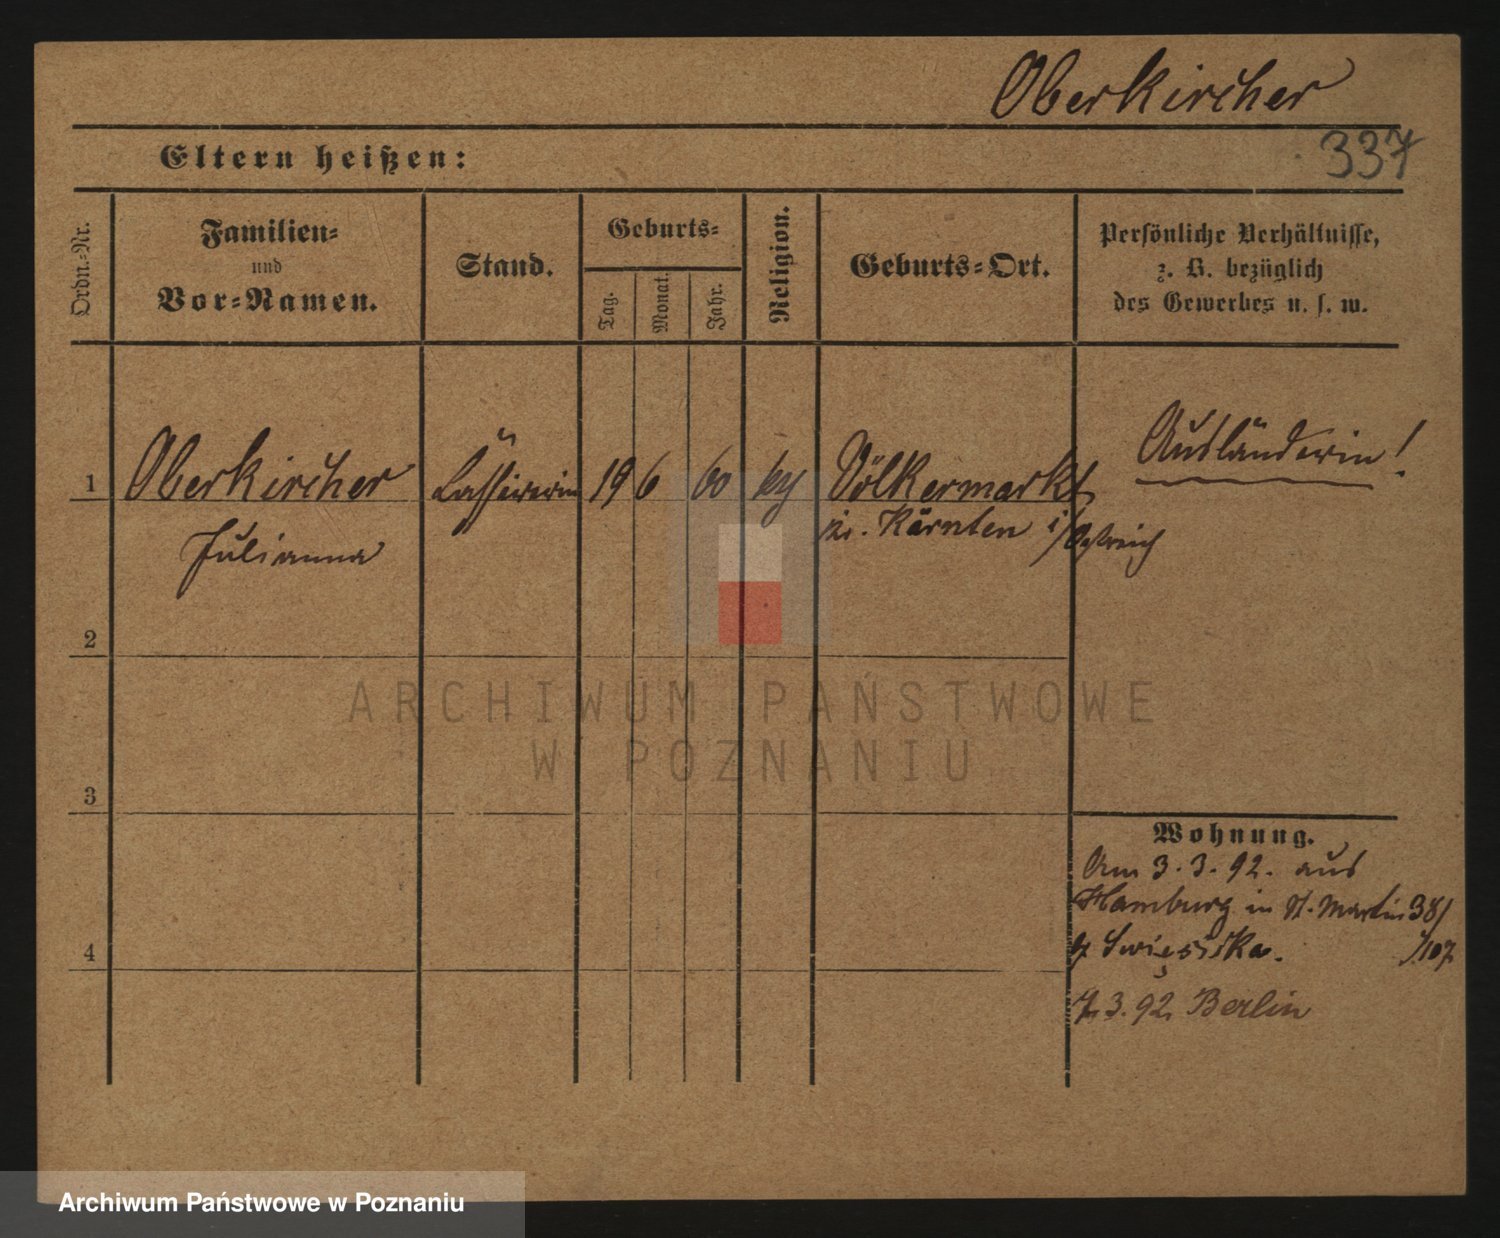 Oberkircher
337
Eltern heißen:
Ordn.-Nr.
Familien-
und
Vor-Namen.
Stand.
Geburts-
Tag.
Monat.
Jahr.
Religion.
Geburts-Ort.
Persönliche Verhältnisse,
z. B. bezüglich
des Gewerbes u. s. w.
Ausländerin!
1 Oberkircher 19 6 60 Völkermarkt
Julianna
Kärnten i/ Östreich
2
ARCHIWUM PAŃSTWOWE
W POZNANIU
3
Wohnung.
Am 3.3.92. aus
Hamburg in St. Martin 38/
4
7.3.92. Berlin
Archiwum Państwowe w Poznaniu